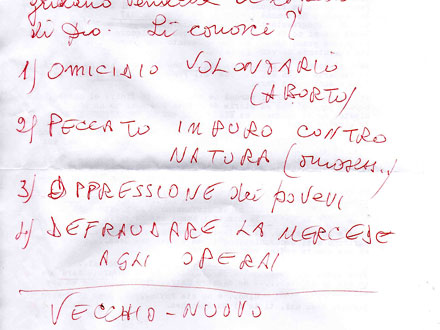 gridano vendetta
di Dio. Li conosci?
1) OMICIDIO VOLONTARIO
(ABORTO)
2) PECCATO IMPURO CONTRO
NATURA (omoses..)
3) OPPRESSIONE dei poveri
4) DEFRAUDARE LA MERCEDE
AGLI OPERAI
VECCHIO-NUOVO